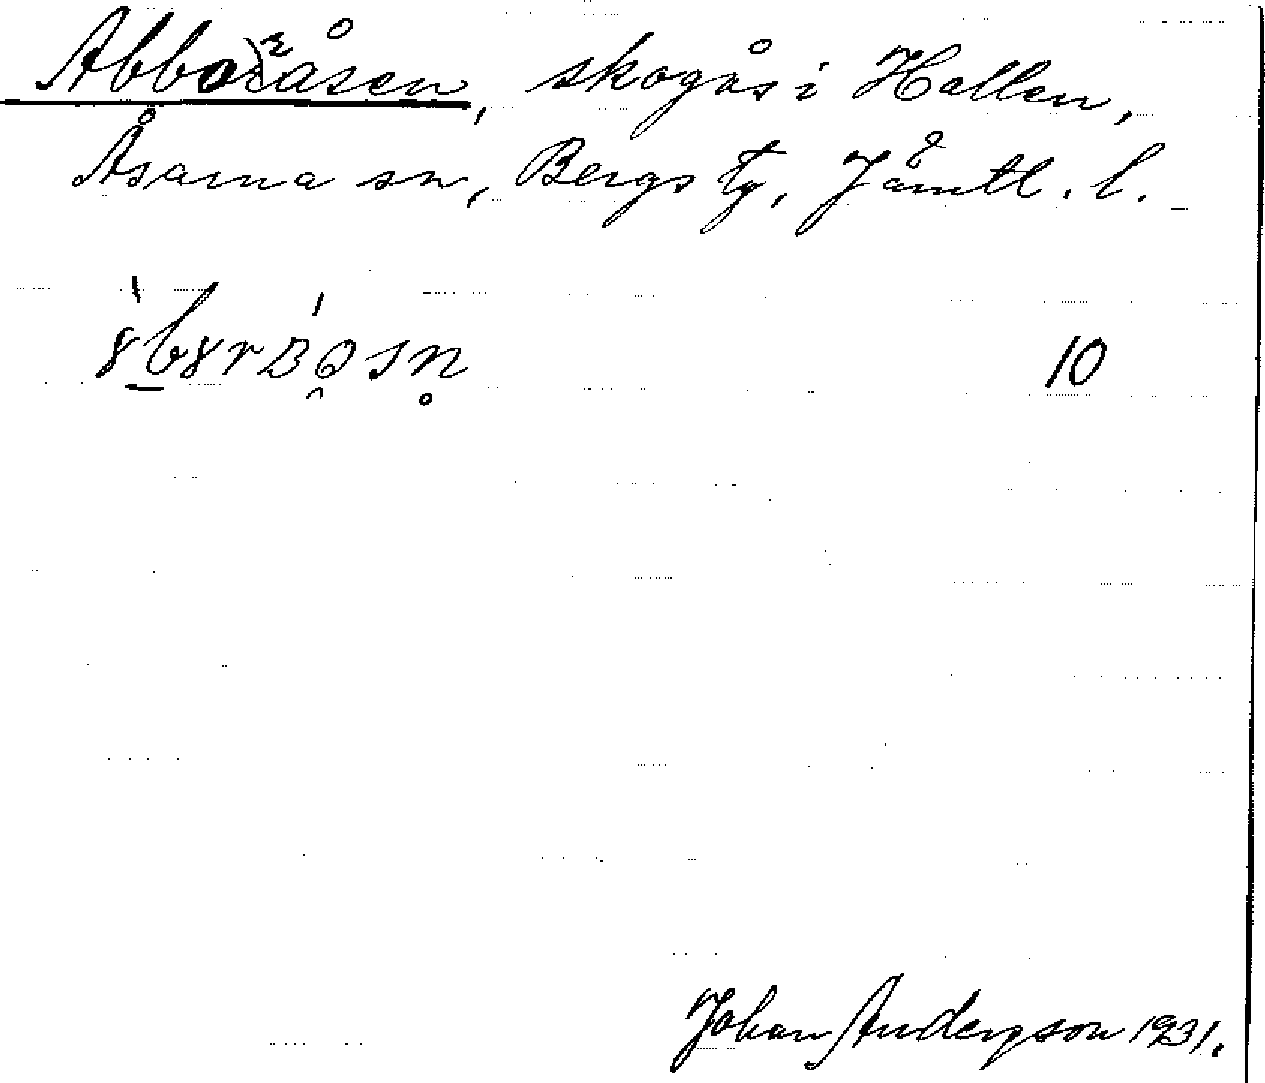 Abborråsen, skogås i Hallen,
Åsarna sn, Bergs tg, Jämtl. l.
10
Johan Anderson 1931.